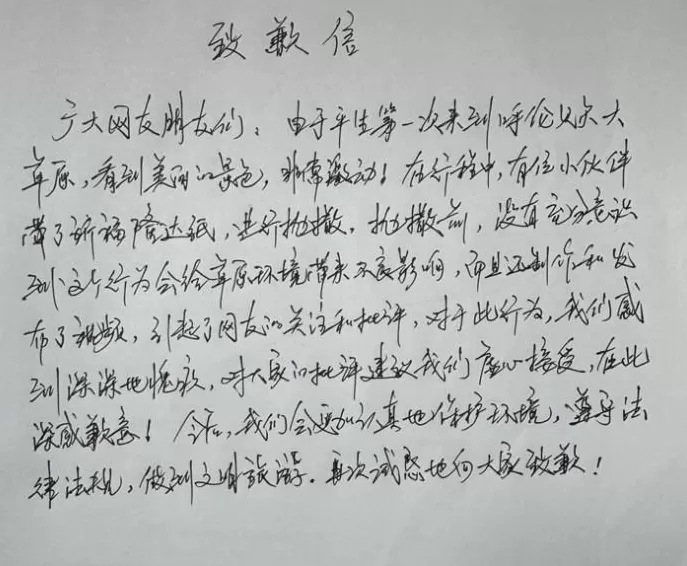 致歉信
广大网友朋友们：由于平生第一次来到呼伦贝尔大
草原，看到美丽的景色，非常激动！在行程中，有位小伙伴
带了祈福隆达纸，进行抛撒，抛撒前，没有充分意识
到这个行为会给草原环境带来不良影响，而且还制作和发
布了视频，引起了网友的关注和批评，对于此行为，我们感
到深深地愧疚，对大家的批评建议我们虚心接受，在此
深感歉意！今后，我们会更加认真地保护环境，遵守法
律法规，做到文明旅游．再次诚恳地向大家致歉！